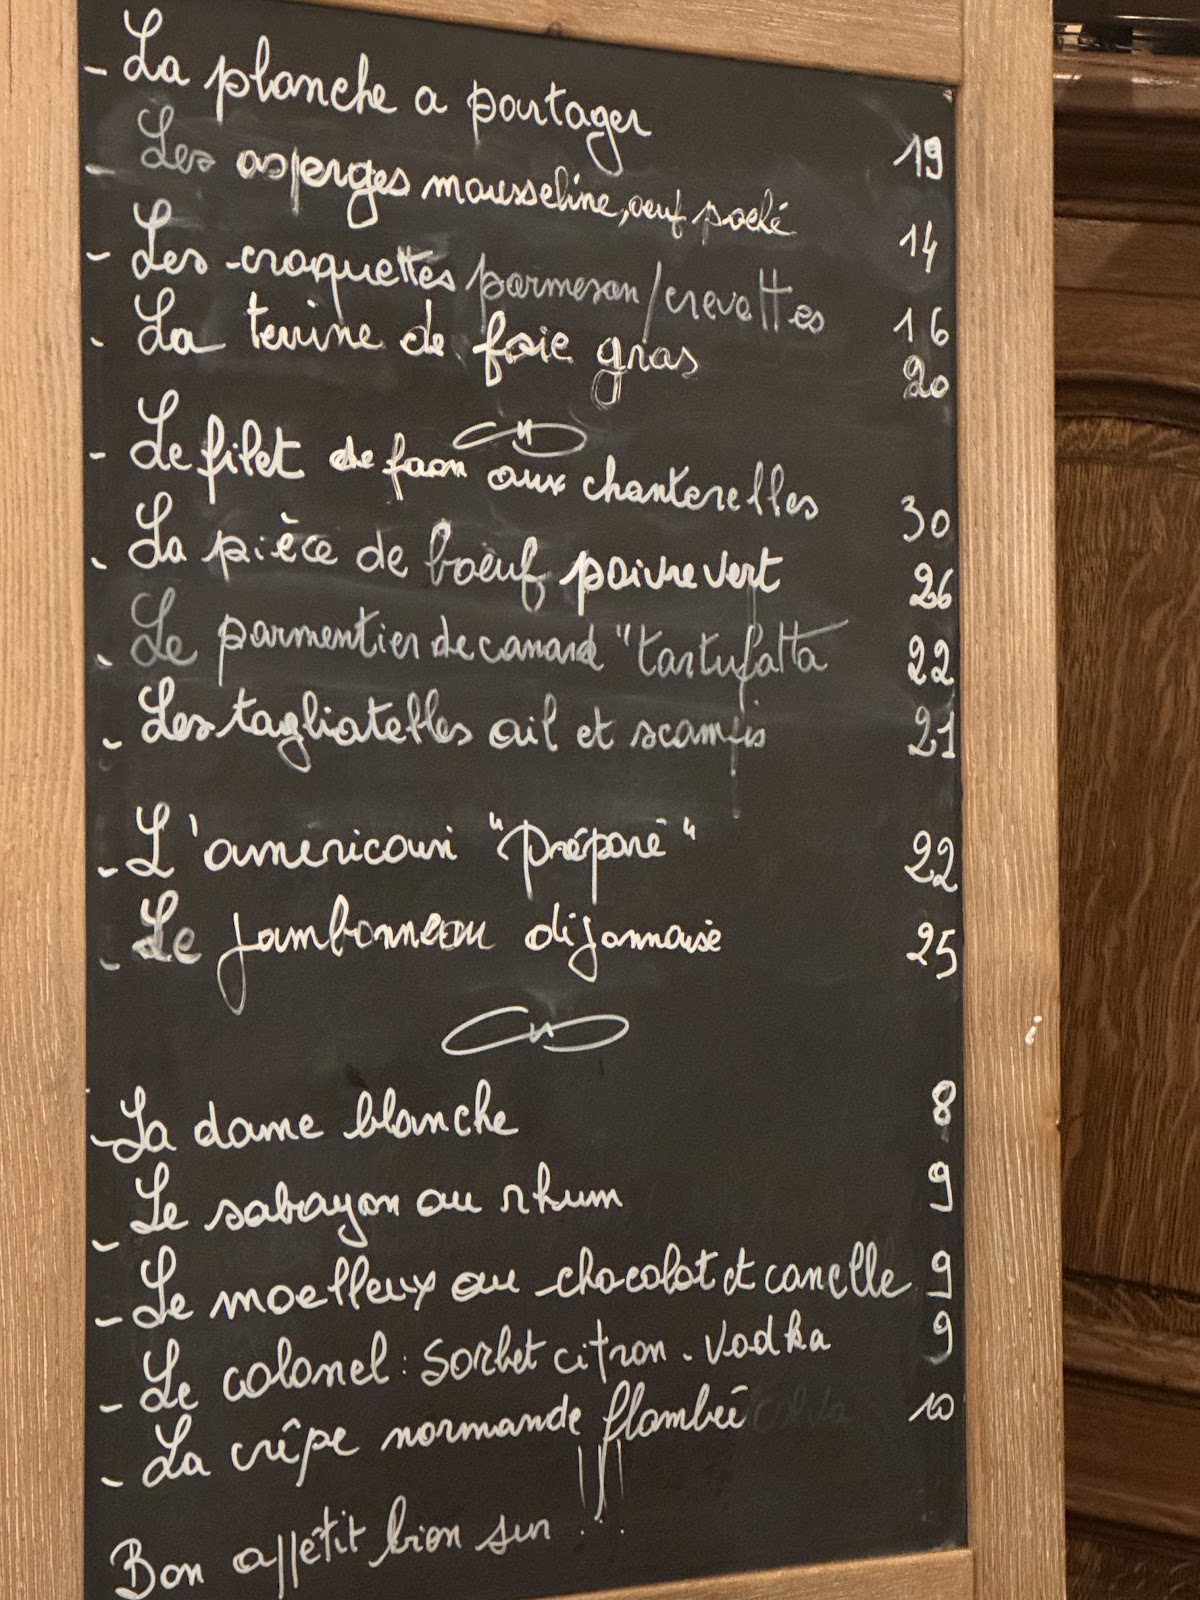 - La planche a partager 19
- Les asperges mousseline, oeuf poché 14
- Les croquettes parmesan/crevettes 16
- La terrine de foie gras 20
- Le filet de faon aux chanterelles 30
- La pièce de boeuf poivre vert 26
- Le parmentier de canard "tartufatta 22
- Les tagliatelles ail et scampis 21
- L'américain "préparé" 22
- Le jambonneau dijonnaise 25
- La dame blanche 8
- Le sabayon au rhum 9
- Le moelleux au chocolat et canelle 9
- Le colonel : sorbet citron - vodka 9
- La crêpe normande flambée 10
Bon appétit bien sur ...